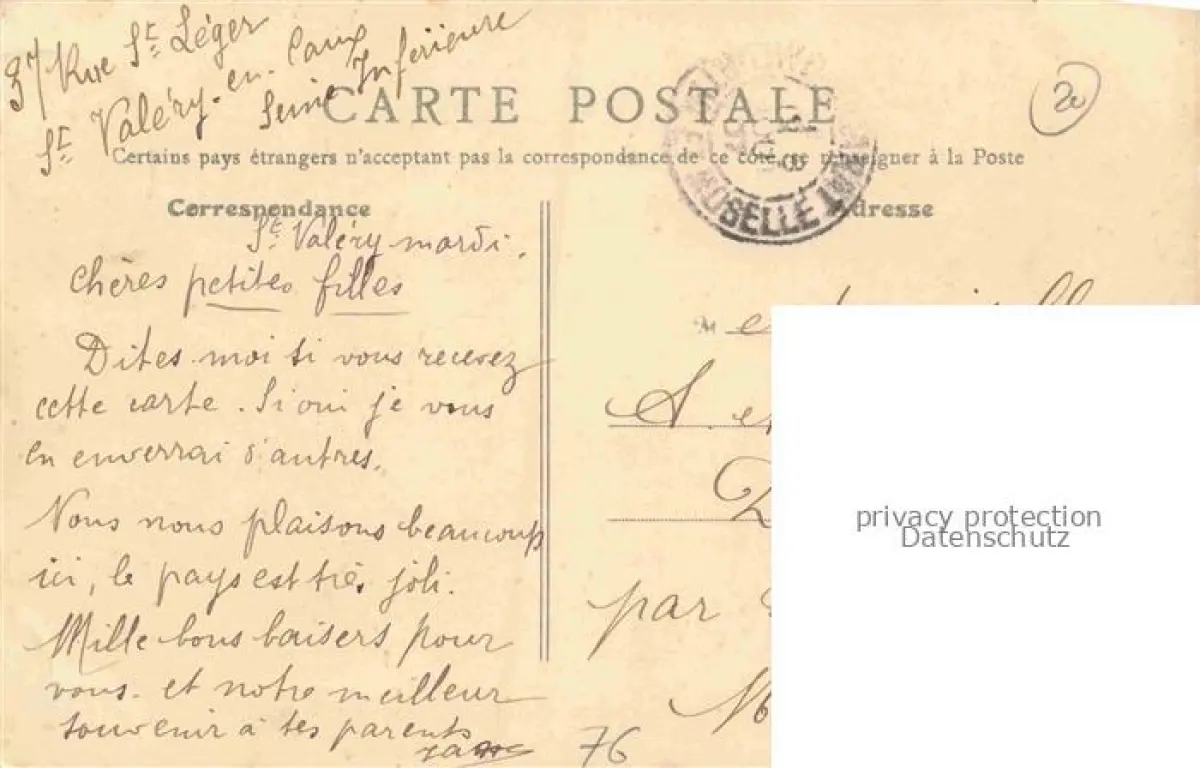 37 Rue St Léger
St Valéry-en-Caux
Seine Inférieure
20
CARTE POSTALE
Certains pays étrangers n'acceptant pas la correspondance de ce côté, se renseigner à la Poste
MOSELLE
Correspondance
Adresse
St Valéry mardi.
Chères petites filles
Dites moi si vous recevez
cette carte. Si oui je vous
en enverrai d'autres.
Nous nous plaisons beaucoup
ici, le pays est très joli.
Mille bons baisers pour
vous. et notre meilleur
souvenir à tes parents
M
par
76
privacy protection
Datenschutz